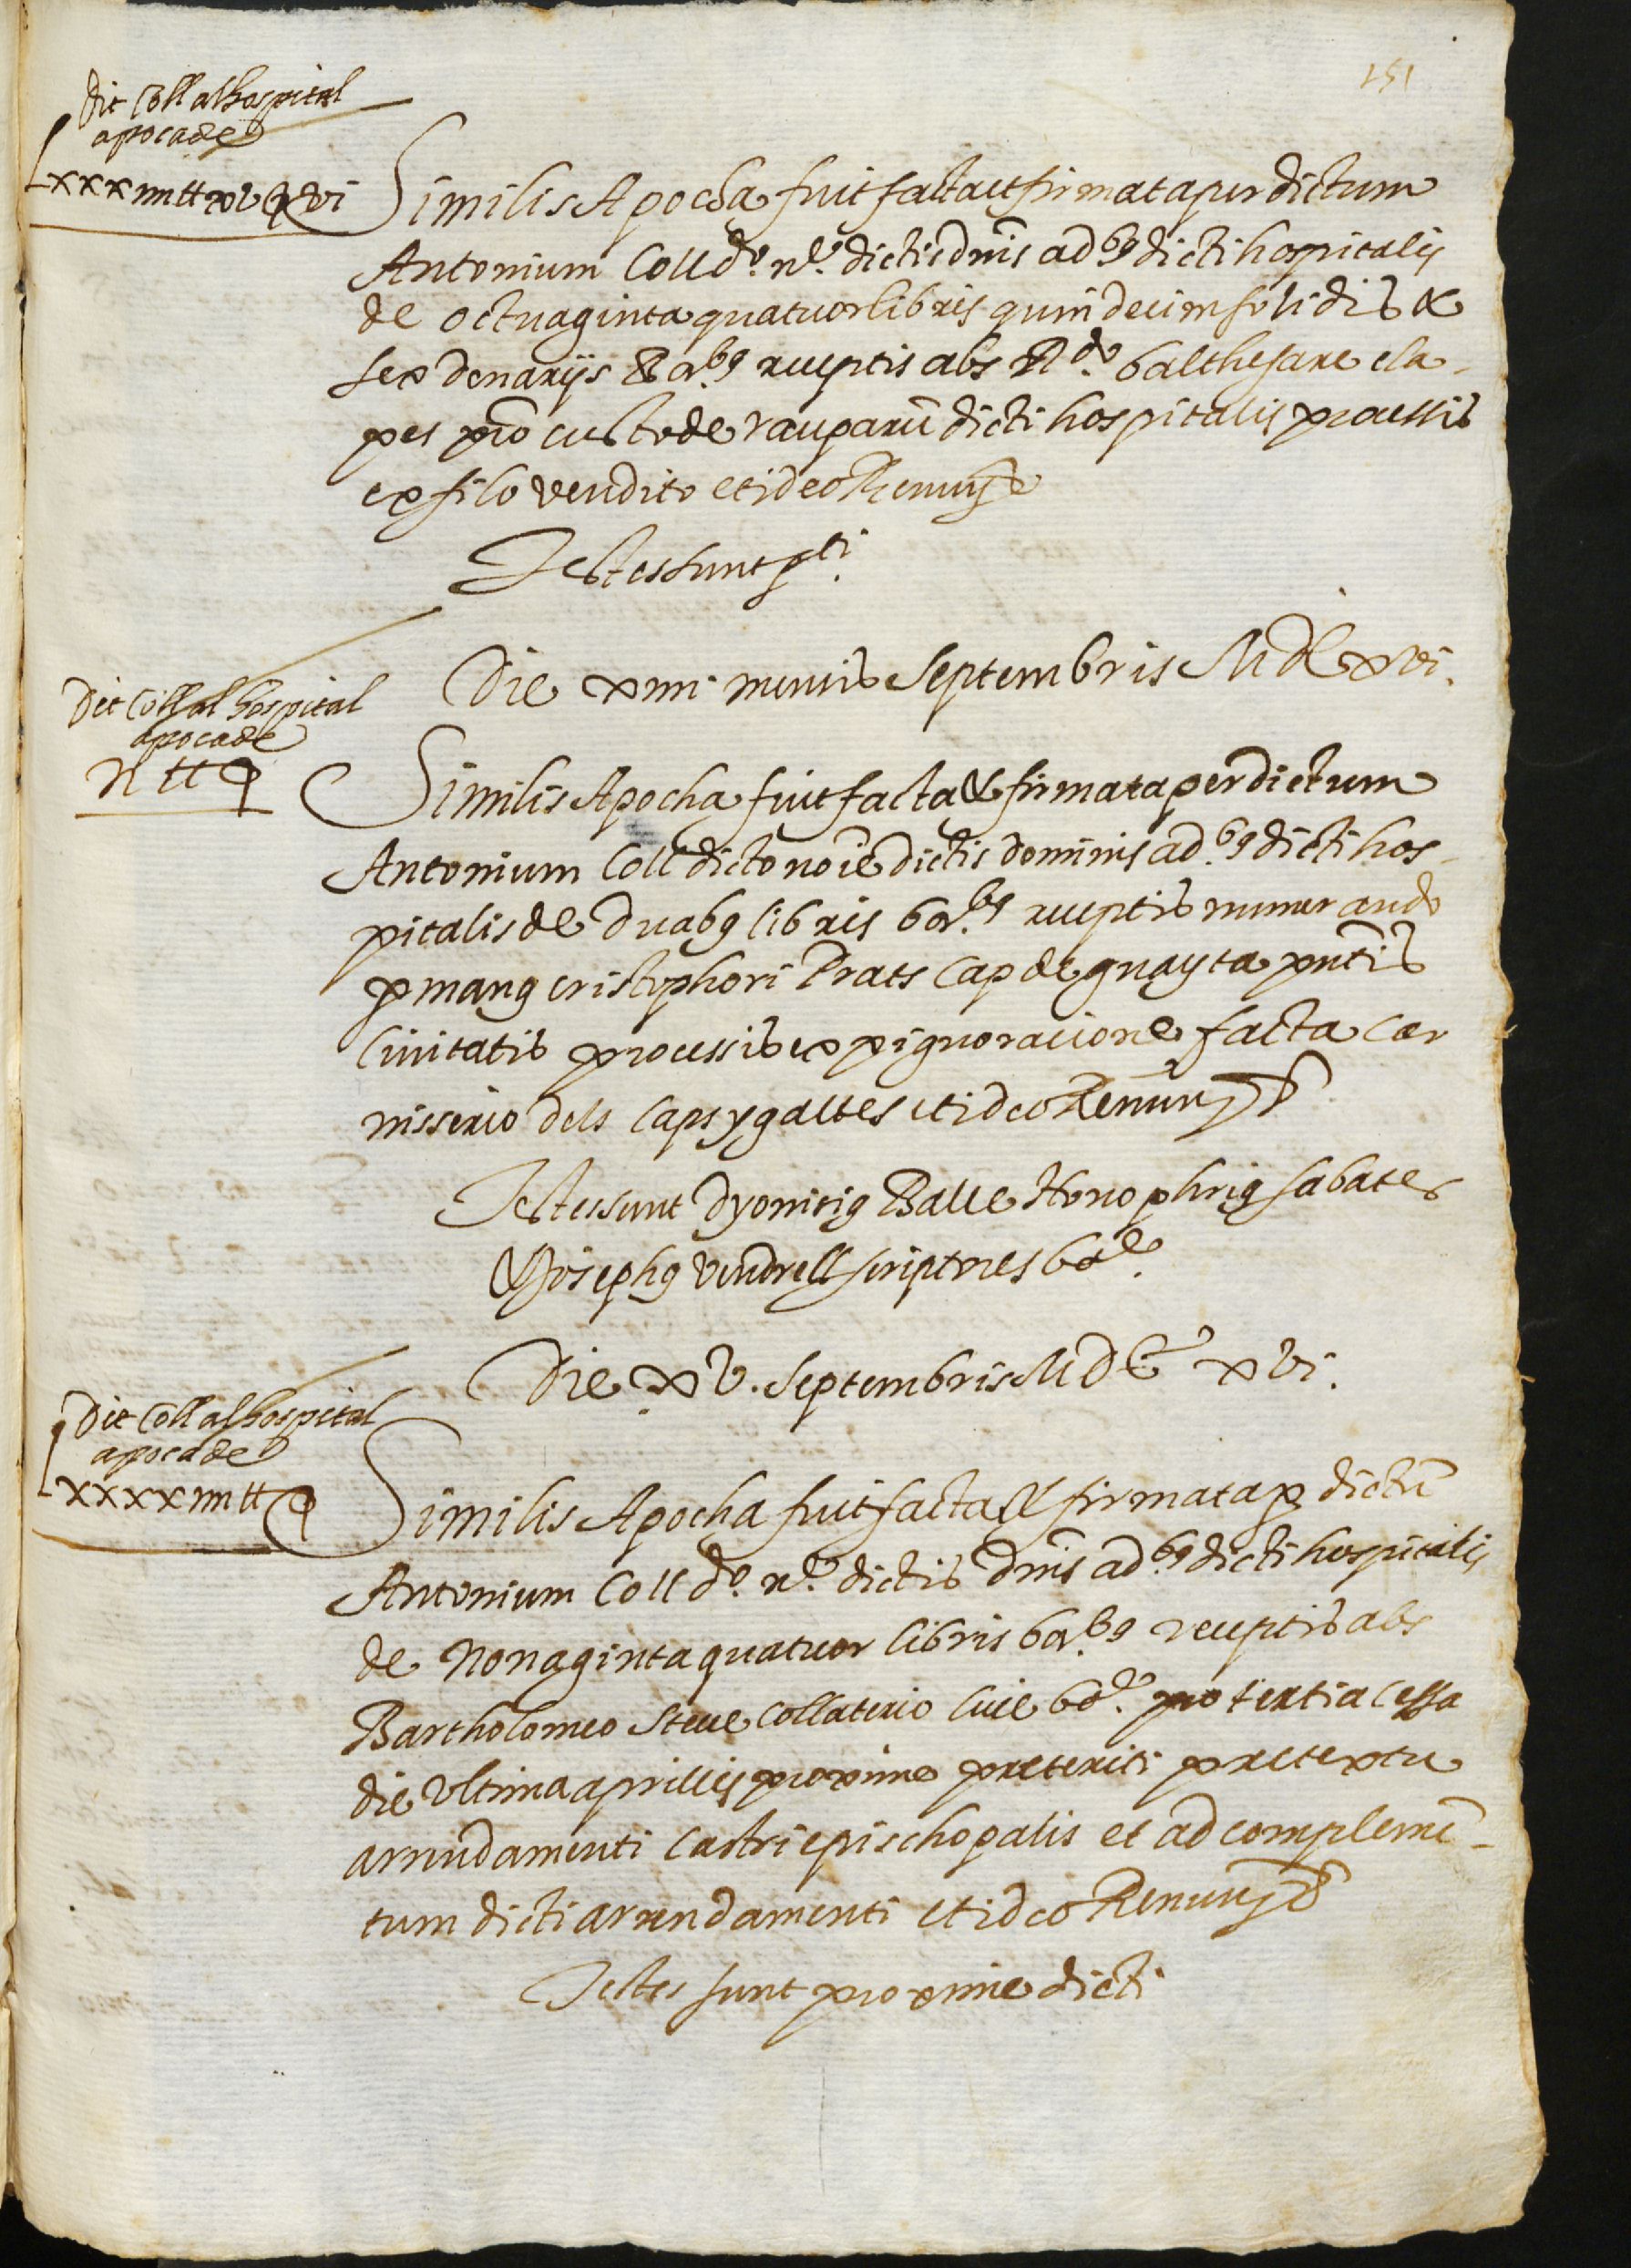 151
Dit Coll al hospital
apoca de
Lxxxiiii ll xv ẜ vi
Similis Apocha fuit facta et firmata per dictum
Antonium Coll do. ne. dictis dnis adbꝰ dicti hospitalis
de octuaginta quatuor libris quindecim solidis &
sex denarijs Barbꝰ receptis abs Rdo. balthesare cla-
pes pro custode rauparu dicti hospitalis processis
ex filo vendito et ideo Renun &
Testes sunt pti.
Die xiiii mensis Septembris MDLxvi.
Dit Coll al hospital
apoca de
ii ll ẜ
Similis Apocha fuit facta & firmata per dictum
Antonium Coll dicto noie dictis dominis adbꝰ dicti hos-
pitalis de duabꝰ libris barbꝰ receptis numerando
p manꝰ cristophori Prats Cap de guayta pntis
Civitatis processis ex pignoracione facta Car
nisserio dels caps y galtes et ideo Renun &
Testes sunt Dyonisiꝰ Balle Honophriꝰ sabater
& Josephꝰ vendrell scriptores bde.
Die xv. Septembris MDLxvi.
Dit Coll al hospital
apoca de
Lxxxxiiii ll ẜ
Similis Apocha fuit facta & firmata p dictu
Antonium Coll do. ne. dictis dnis adbꝰ dicti hospitalis
de Nonaginta quatuor libris barbꝰ receptis abs
Bartholomeo Steve collaterio Curie bde. pro tertia cessa
die ultima aprillis proxime preteriti pretextu
arrendamenti Castri epischopalis et ad complemē-
tum dicti arrendamenti et ideo Renun &
Testes sunt proxime dicti